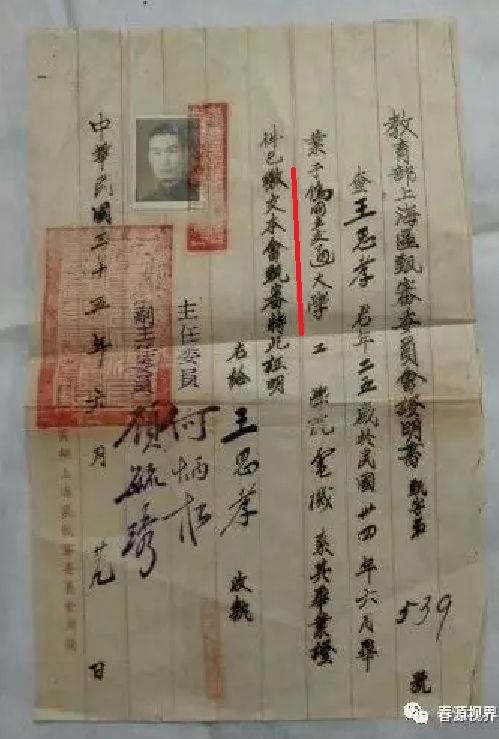 教育部上海區甄審委員會證明書 甄字第539號
查王思孝君年二五歲於民國卅四年六月畢
業于僞國立交通大學工學院電機系其畢業證
件已繳交本會甄審特此証明
右給王思孝收執
主任委員 何炳松
副主任委員 顧毓琇
中華民國三十五年六月廿九日
春源视界